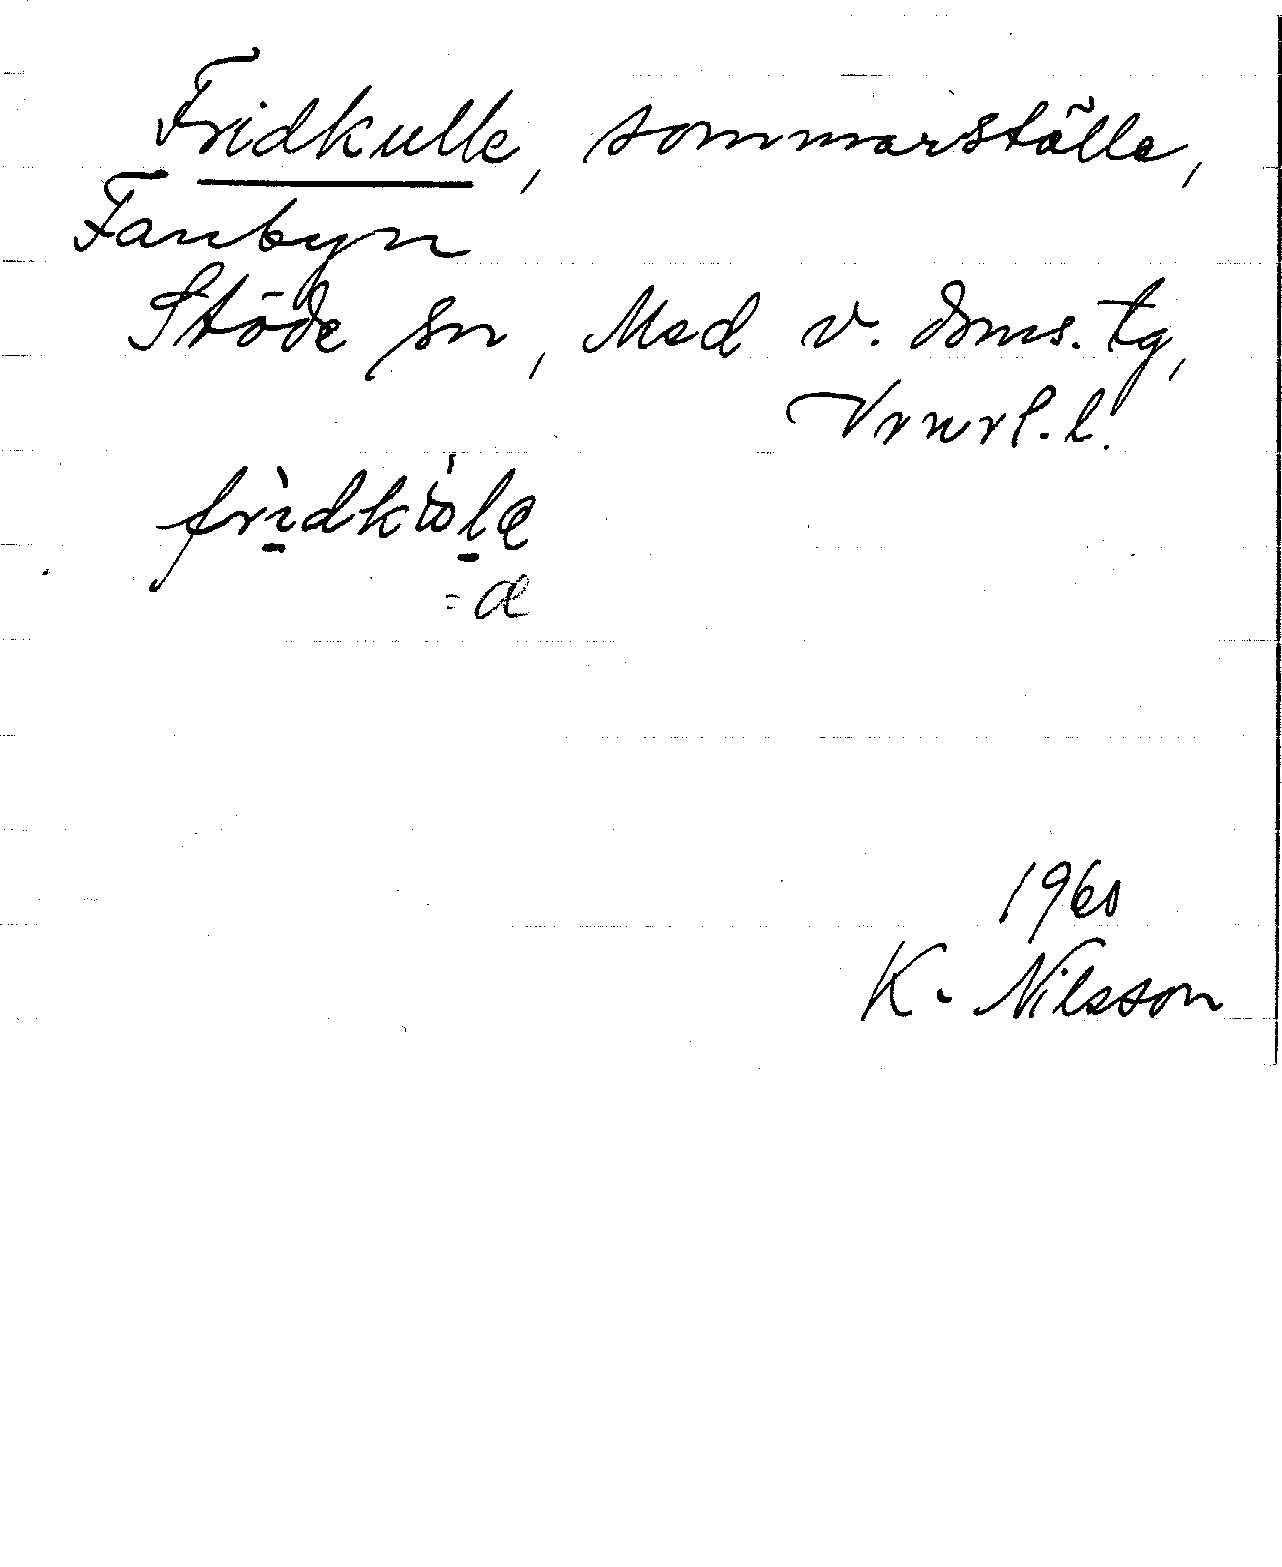 Fridkulle, sommarställe,
Fanbyn
Stöde sn, Med v. doms. tg,
Vrnrl. l.
fridkωlæ
= æ
1960
K. Nilsson